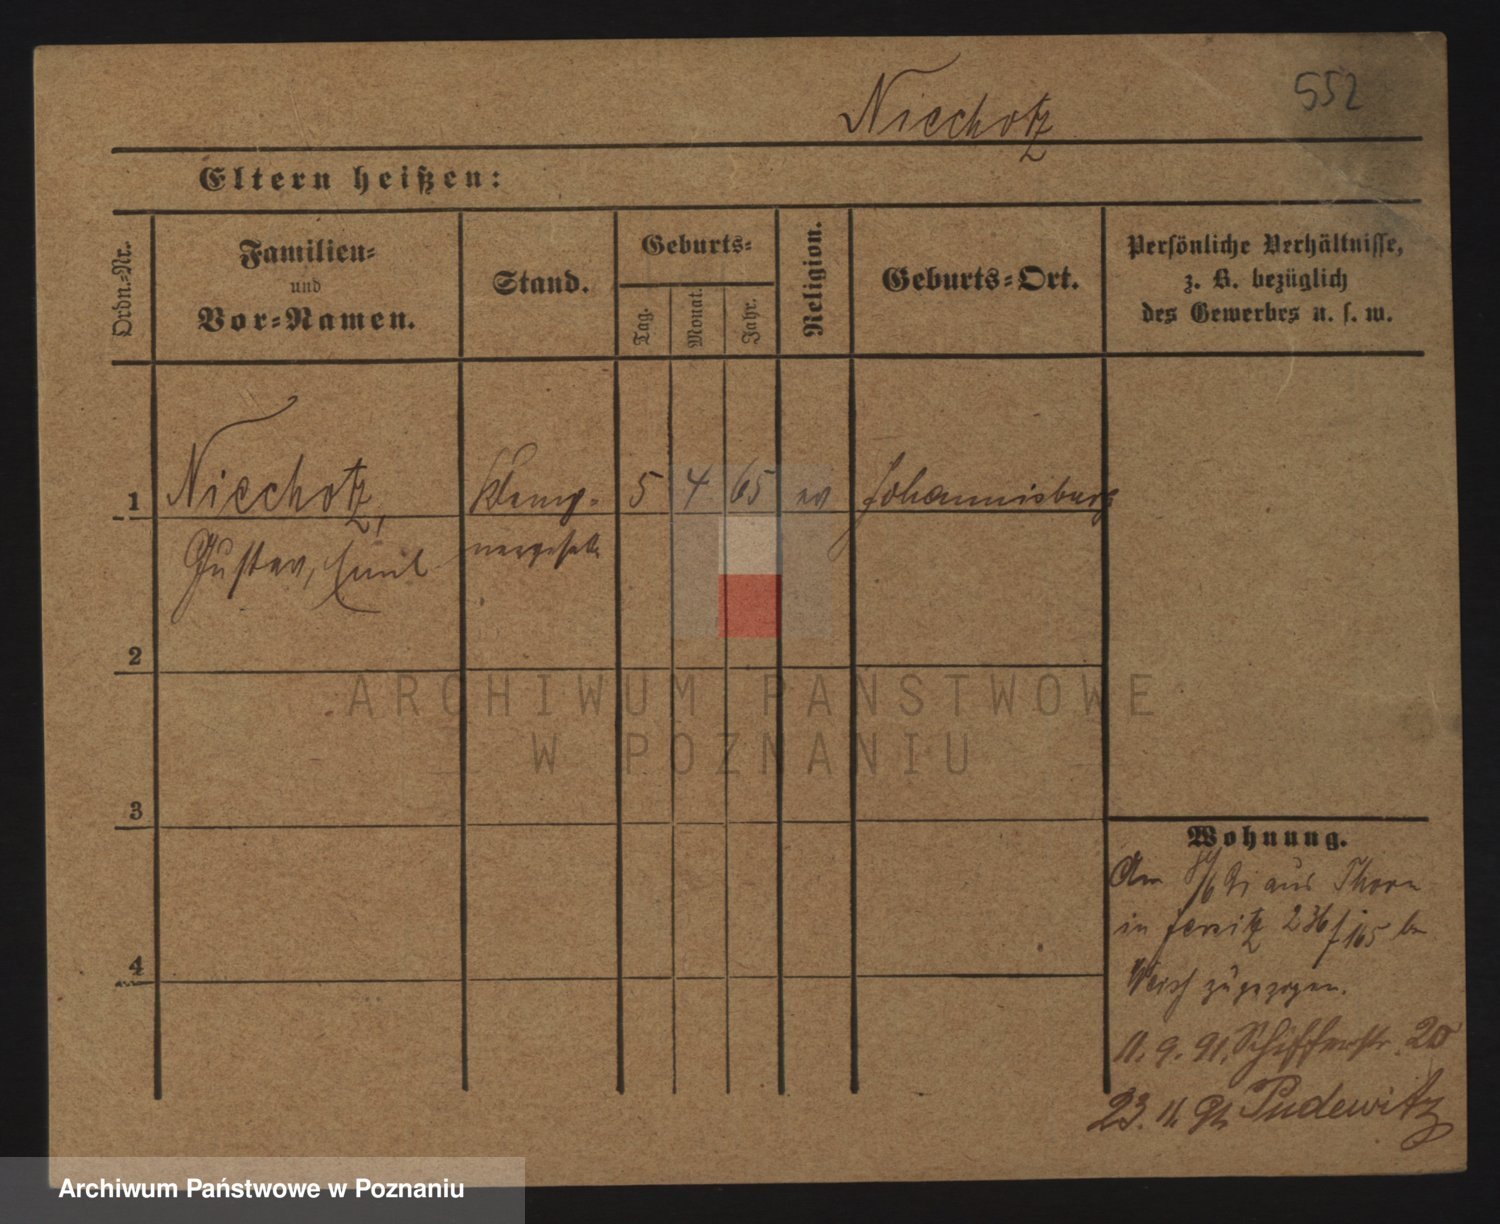 Niechotz
552
Eltern heißen:
Ordn.-Nr.
Familien-
und
Vor-Namen.
Stand.
Geburts-
Tag.
Monat.
Jahr.
Religion.
Geburts-Ort.
Persönliche Verhältnisse,
z. B. bezüglich
des Gewerbes u. s. w.
1
Niechotz, Klemp- 5 4 65 ev Johannisburg
Gustav, Emil nergeselle
2
ARCHIWUM PAŃSTWOWE
W POZNANIU
3
Wohnung.
Am 91 aus Thorn
in Jersitz 236/165 bei
zugezogen.
4
11. 9. 91. Schifferstr. 20
23. 11. 91 Pudewitz
Archiwum Państwowe w Poznaniu